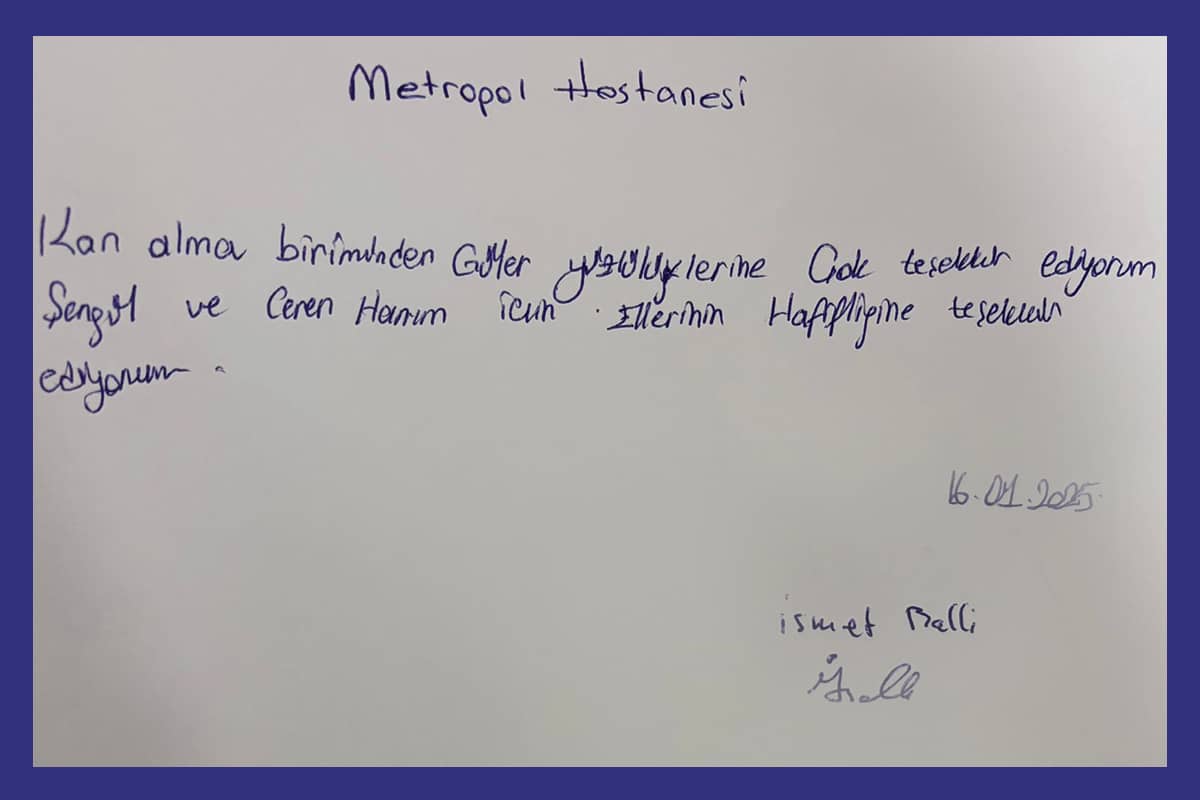 Metropol Hastanesi
Kan alma biriminden Güler yüzlülüklerine Çok teşekkür ediyorum
Şengül ve Ceren Hanım için. Ellerinin Hafifligine teşekkür
ediyorum.
16.01.2025
ismet Balli